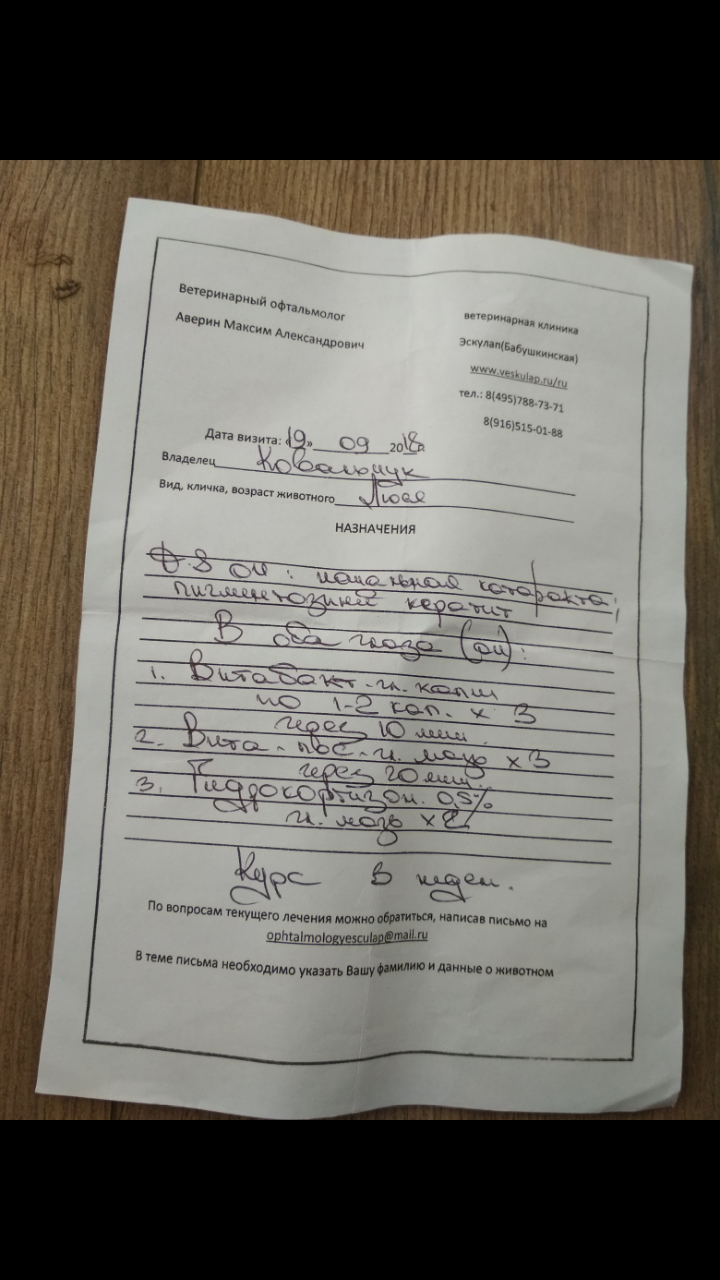 Ветеринарный офтальмолог
Аверин Максим Александрович
ветеринарная клиника
Эскулап(Бабушкинская)
www.veskulap.ru/ru
тел.: 8(495)788-73-71
8(916)515-01-88
Дата визита: «19» 09 2018г.
Владелец Ковальчук
Вид, кличка, возраст животного Люся
НАЗНАЧЕНИЯ
OU: начальная катаракта;
пигментозный кератит
В оба глаза (OU):
1. Витабакт - гл. капли
по 1-2 кап. х 3
через 10 мин.
2. Вита-пос - гл. мазь х3
через 20 мин.
3. Гидрокортизон. 0,5%
гл. мазь х 2
Курс 3 недел.
По вопросам текущего лечения можно обратиться, написав письмо на
ophtalmologyesculap@mail.ru
В теме письма необходимо указать Вашу фамилию и данные о животном